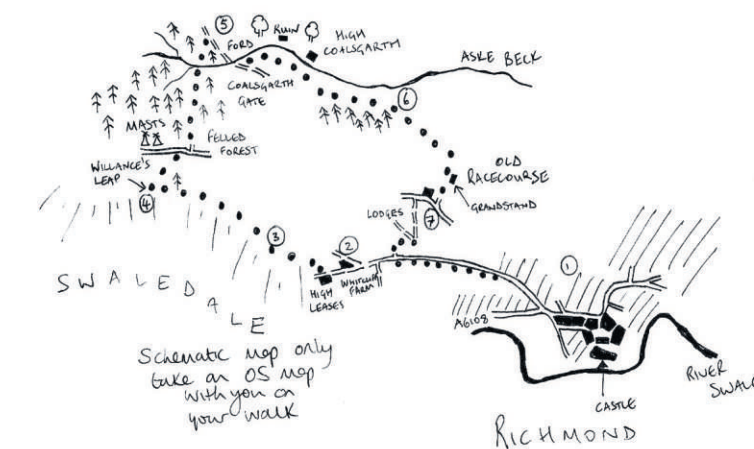 5
RUIN
HIGH
COALSGARTH
FORD
ASKE BECK
COALSGARTH
GATE
6
MASTS
FELLED
FOREST
WILLANCE'S
LEAP
4
OLD
RACECOURSE
GRANDSTAND
7
LODGES
3
2
1
HIGH
LEASES
WHITCLIFFE
FARM
SWALEDALE
A6108
Schematic map only
take an OS map
with you on
your walk
CASTLE
RIVER
SWAL
RICHMOND